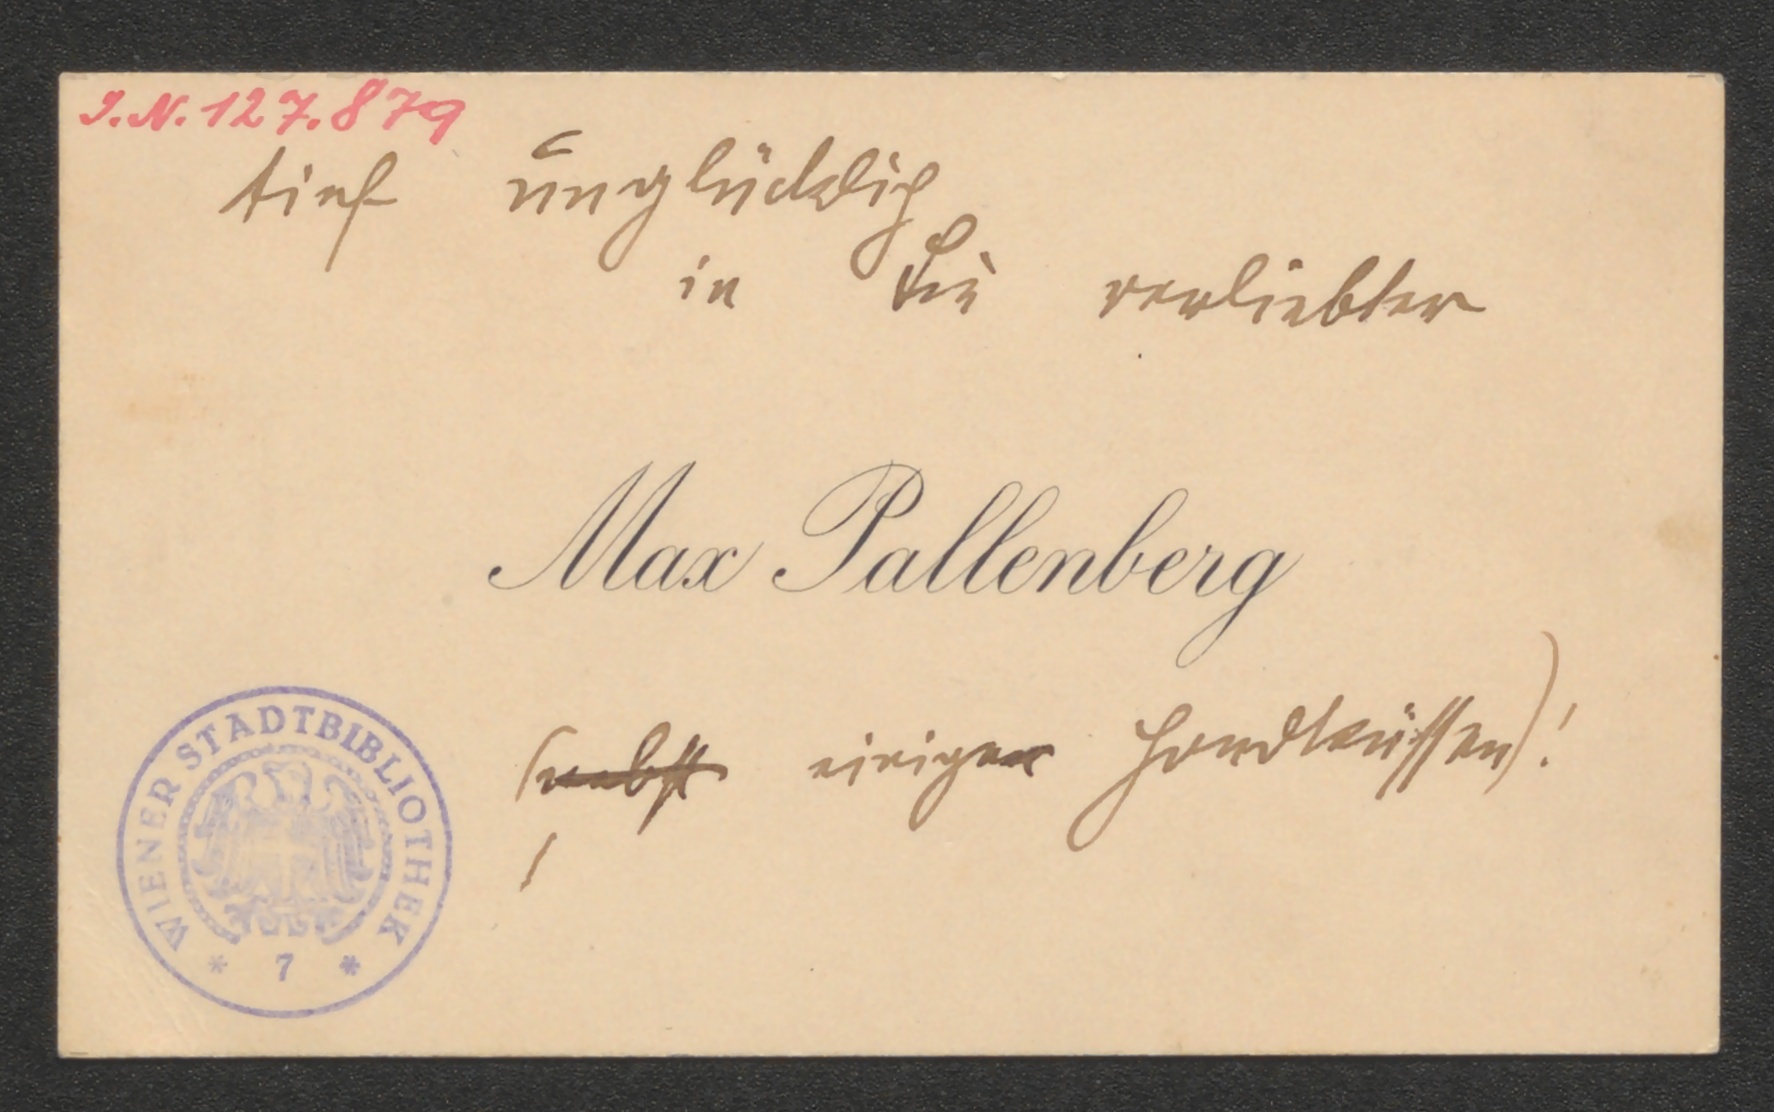 I.N. 127.879
tief unglücklich
in Sie verliebter
Max Pallenberg
(nebst einigen Handküssen)!
WIENER STADTBIBLIOTHEK
* 7 *